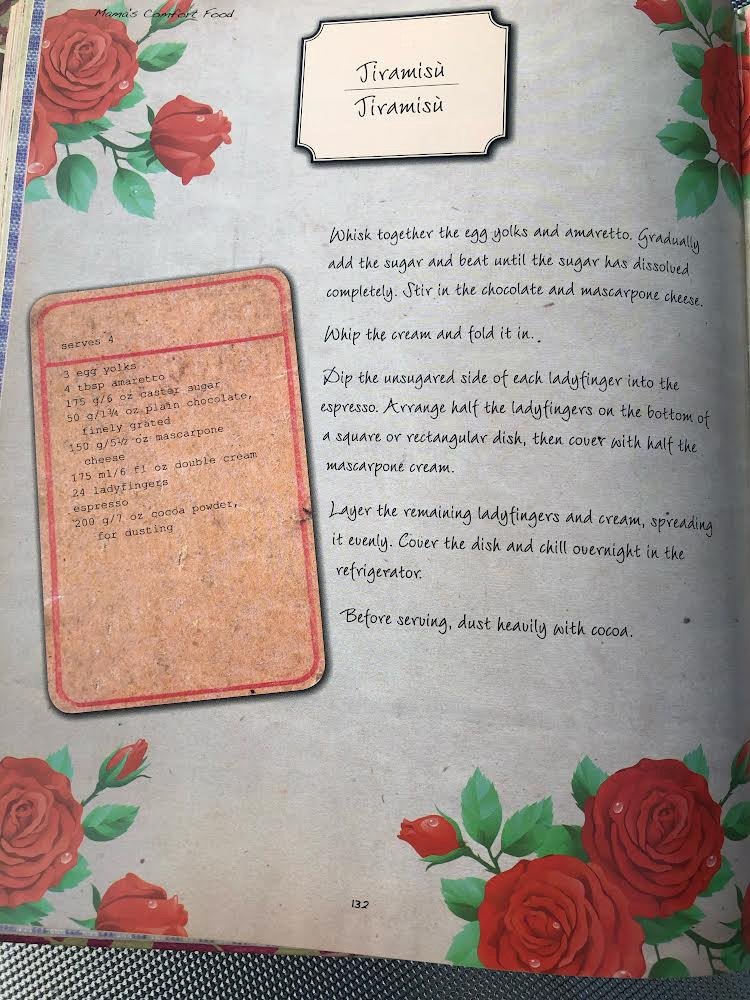 Mama's Comfort Food
Tiramisù
Tiramisù
serves 4
3 egg yolks
4 tbsp amaretto
175 g/6 oz caster sugar
50 g/1¾ oz plain chocolate,
finely grated
150 g/5½ oz mascarpone
cheese
175 ml/6 fl oz double cream
24 ladyfingers
espresso
200 g/7 oz cocoa powder,
for dusting
Whisk together the egg yolks and amaretto. Gradually
add the sugar and beat until the sugar has dissolved
completely. Stir in the chocolate and mascarpone cheese.
Whip the cream and fold it in.
Dip the unsugared side of each ladyfinger into the
espresso. Arrange half the ladyfingers on the bottom of
a square or rectangular dish, then cover with half the
mascarpone cream.
Layer the remaining ladyfingers and cream, spreading
it evenly. Cover the dish and chill overnight in the
refrigerator.
Before serving, dust heavily with cocoa.
132